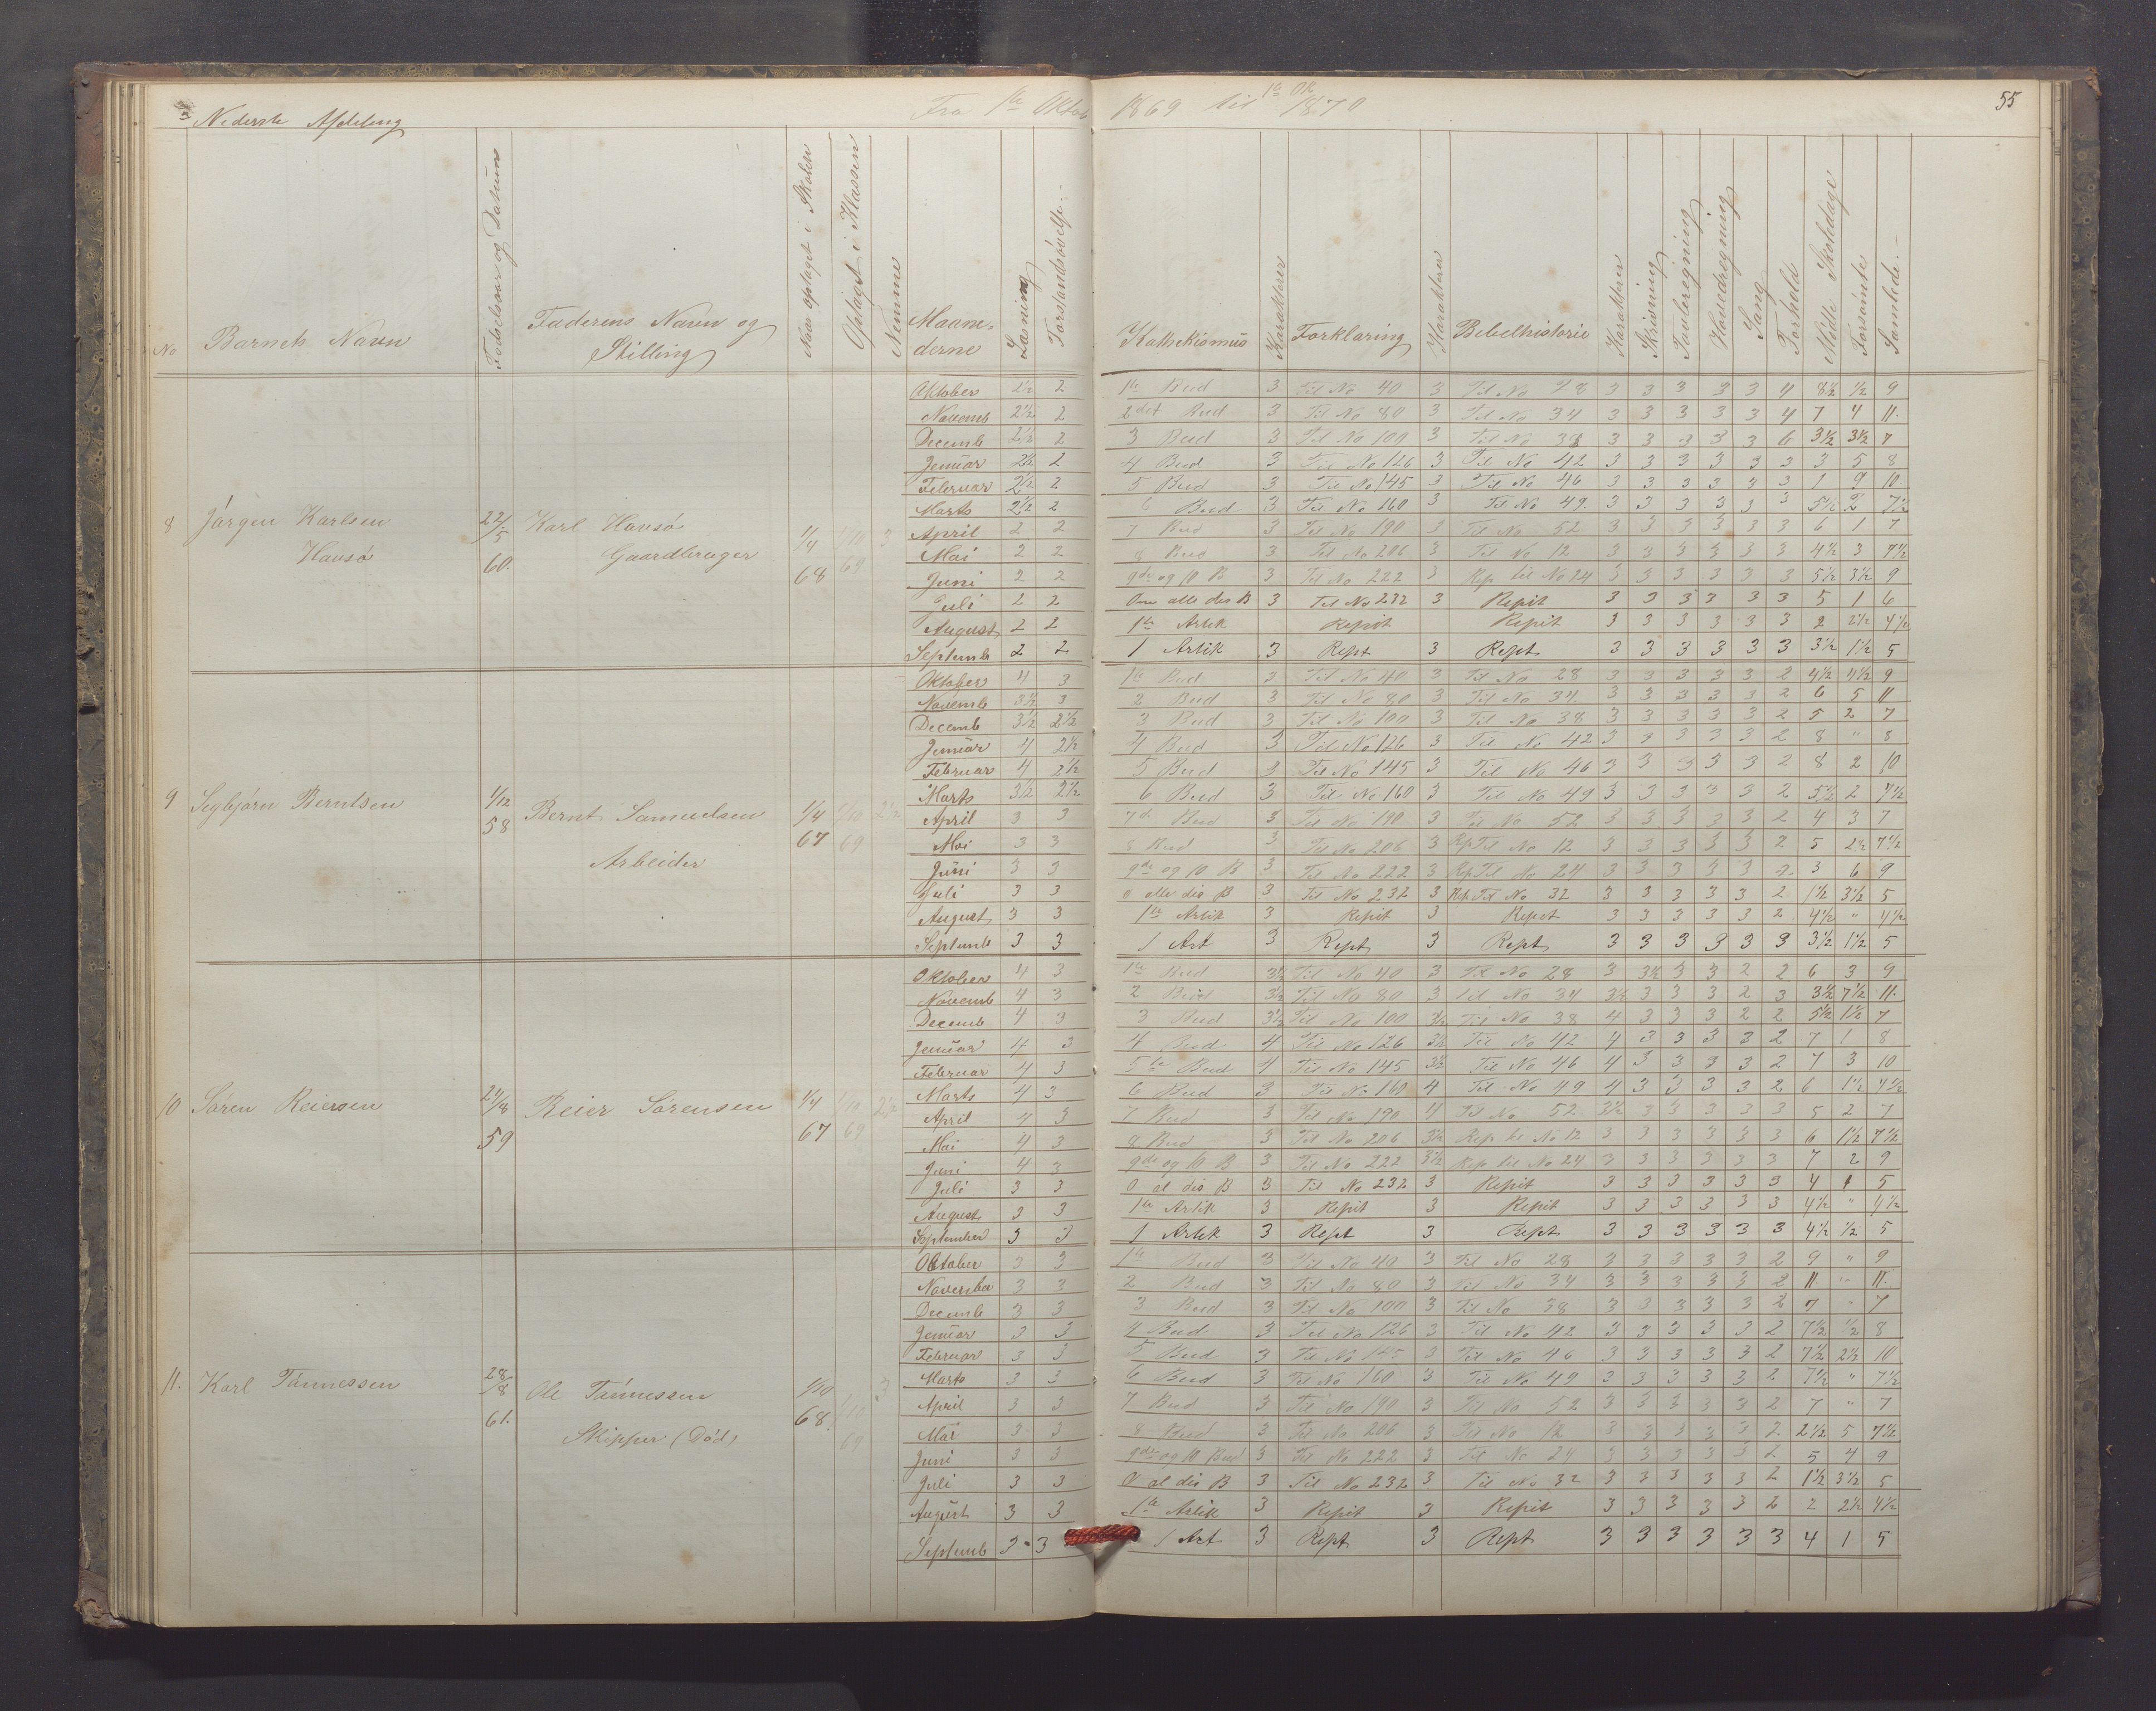 Nederste Afdeling Fra 1te Oktob 1869 til 1te Ok 1870 55
No Barnets Navn Fødselsaar og Datum Faderens Navn og Stilling Naar optaget i Skolen Optaget i Klassen Nemme Maanederne Læsning Forstandsøvelse Kathekismus Karakterer Forklaring Karakterer Bibelhistorie Karakterer Skrivning Tavleregning Hovedregning Sang Forhold Mødte Skoledage Forsømte Samtlede
8 Jørgen Karlsen Hausø 22/5 60. Karl Hausø Gaardbruger 1/4 68 1/10 69 3
Oktober 2½ 2 1te Bud 3 Til No 40 3 Til No 28 3 3 3 3 3 4 8½ ½ 9
Novemb 2½ 2 2det Bud 3 Til No 80 3 Til No 34 3 3 3 3 3 4 7 4 11.
Decemb 2½ 2 3 Bud 3 Til No 100 3 Til No 38 3 3 3 3 3 6 3½ 3½ 7
Januar 2½ 2 4 Bud 3 Til No 126 3 Til No 42 3 3 3 3 3 3 3 5 8
Februar 2½ 2 5 Bud 3 Til No 145 3 Til No 46 3 3 3 3 3 3 1 9 10
Marts 2½ 2 6 Bud 3 Til No 160 3 Til No 49. 3 3 3 3 3 3 5½ 2 7½
April 2 2 7 Bud 3 Til No 190 3 Til No 52 3 3 3 3 3 3 6 1 7
Mai 2 2 8 Bud 3 Til No 206 3 Til No 12 3 3 3 3 3 3 4½ 3 7½
Juni 2 2 9de og 10 B 3 Til No 222 3 Rep til No 24 3 3 3 3 3 3 5½ 3½ 9
Juli 2 2 Om alle dis B 3 Til No 232 3 Repit 3 3 3 3 3 3 5 1 6
August 2 2 1te Artik Repit Repit 3 3 3 3 3 3 2 2½ 4½
Septemb 2 2 1 Artik 3 Rept 3 Rept 3 3 3 3 3 3 3½ 1½ 5
9 Segbjørn Berntsen 1/12 58 Bernt Samuelsen Arbeider 1/4 67 1/10 69 2½
Oktober 4 3 1te Bud 3 Til No 40 3 Til No 28 3 3 3 3 3 2 4½ 4½ 9
Novemb 3½ 3 2 Bud 3 Til No 80 3 Til No 34 3 3 3 3 3 2 6 5 11
Decemb 3½ 2½ 3 Bud 3 Til No 100 3 Til No 38 3 3 3 3 3 2 5 2 7
Januar 4 2½ 4 Bud 3 Til No 126 3 Til No 42 3 3 3 3 3 2 8 " 8
Februar 4 2½ 5 Bud 3 Til No 145 3 Til No 46 3 3 3 3 3 2 8 2 10
Marts 3½ 2½ 6 Bud 3 Til No 160 3 Til No 49 3 3 3 3 3 2 5½ 2 7½
April 3 3 7d Bud 3 Til No 190 3 Til No 52 3 3 3 3 3 2 4 3 7
Mai 3 3 8 Bud 3 Til No 206 3 Rp Til No 12 3 3 3 3 3 2 5 2½ 7½
Juni 3 3 9de og 10 B 3 Til No 222 3 Rp Til No 24 3 3 3 3 3 2 3 6 9
Juli 3 3 O alle dis B 3 Til No 232 3 Rp Til No 32 3 3 3 3 3 2 1½ 3½ 5
August 3 3 1te Artik 3 Repit 3 Repit 3 3 3 3 3 2 4½ " 4½
Septemb 3 3 1 Art 3 Rept 3 Rept 3 3 3 3 3 3 3½ 1½ 5
10 Søren Reiersen 24/8 59 Reier Sørensen 1/4 67 1/10 69 2½
Oktober 4 3 1te Bud 3½ Til No 40 3 Til No 28 3 3½ 3 3 2 2 6 3 9
Novemb 4 3 2 Bud 3½ Til No 80 3 Til No 34 3½ 3 3 3 2 3 3½ 7½ 11.
Decemb 4 3 3 Bud 3½ Til No 100 3½ Til No 38 4 3 3 3 2 2 5½ 1½ 7
Januar 4 3 4 Bud 4 Til No 126 3½ Til No 42 4 3 3 3 3 2 7 1 8
Februar 4 3 5te Bud 4 Til No 145 3½ Til No 46 4 3 3 3 3 2 7 3 10
Marts 4 3 6 Bud 3 Til No 160 4 Til No 49 4 3 3 3 3 2 6 1½ 7½
April 4 3 7 Bud 3 Til No 190 4 Til No 52 3½ 3 3 3 3 3 5 2 7
Mai 4 3 8 Bud 3 Til No 206 3½ Rep til No 12 3 3 3 3 3 3 6 1½ 7½
Juni 4 3 9de og 10 B 3 Til No 222 3½ Rep til No 24 3 3 3 3 3 3 7 2 9
Juli 3 3 O al dis B 3 Til No 232 3 Repit 3 3 3 3 3 3 4 1 5
August 3 3 1te Artik 3 Repit 3 Repit 3 3 3 3 3 3 4½ " 4½
September 3 3 1 Artik 3 Rept 3 Rept 3 3 3 3 3 3 4½ ½ 5
11. Karl Tønnessen 28/8 61. Ole Tønnessen Skipper (Død) 1/10 68. 1/10 69 3
Oktober 3 3 1te Bud 3 Til No 40 3 Til No 28 3 3 3 3 3 2 9 " 9
November 3 3 2 Bud 3 Til No 80 3 Til No 34 3 3 3 3 3 2 11. " 11.
Decemb 3 3 3 Bud 3 Til No 100 3 Til No 38 3 3 3 3 3 2 7 " 7
Januar 3 3 4 Bud 3 Til No 126 3 Til No 42 3 3 3 3 3 2 7½ ½ 8
Februar 3 3 5 Bud 3 Til No 145 3 Til No 46 3 3 3 3 3 2 7½ 2½ 10
Marts 3 3 6 Bud 3 Til No 160 3 Til No 49 3 3 3 3 3 2 7½ " 7½
April 3 3 7 Bud 3 Til No 190 3 Til No 52 3 3 3 3 3 2 7 " 7
Mai 3 3 8 Bud 3 Til No 206 3 Til No 12 3 3 3 3 3 2 2½ 5 7½
Juni 3 3 9de og 10 Bud 3 Til No 222 3 Til No 24 3 3 3 3 3 2 5 4 9
Juli 3 3 O al dis B 3 Til No 232 3 Til No 32 3 3 3 3 3 2 1½ 3½ 5
August 3 3 1te Artik 3 Repit 3 Repit 3 3 3 3 3 2 2 2½ 4½
Septemb 3 3 1 Art 3 Rept 3 Rept 3 3 3 3 3 3 4 1 5